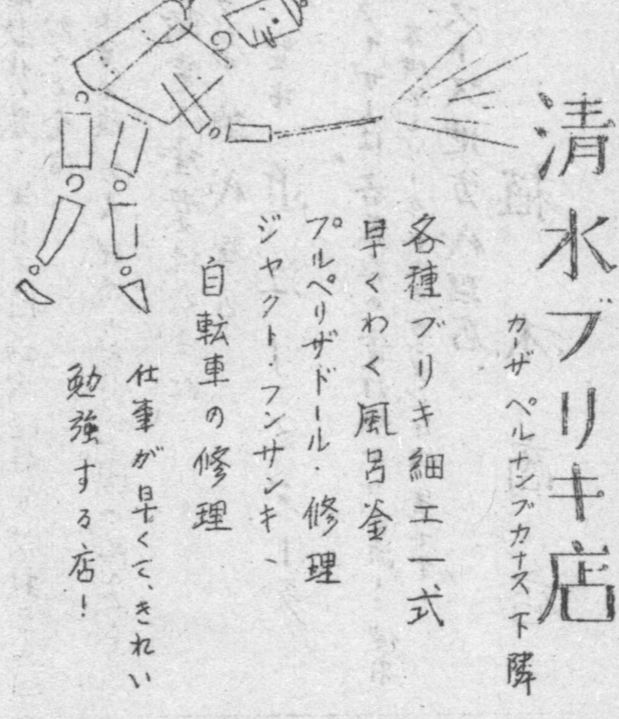 清水ブリキ店
カーザ ペルナンブカナス 下隣
各種ブリキ細工一式
早くわく風呂釜
プルベリザドール・修理
ジャクト・フンサンキ、
自転車の修理
仕事が早くて、きれい
勉強する店！